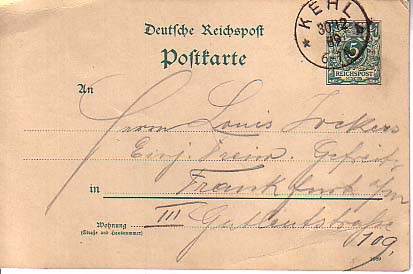 Deutsche Reichspost
Postkarte
KEHL
30 12
89
5
REICHSPOST
An
Herrn Louis
Einj. Freiw. Gefreit.
in Frankfurt a/m
III Gutleutstraße
Wohnung
(Straße und Hausnummer)
109.